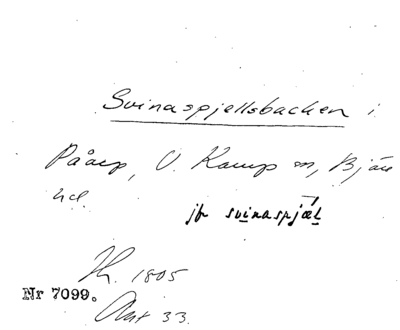 Svinaspjellsbacken i
Påarp, V. Karup sn, Bjäre
hd.
jfr svinaspjæl
1805
Nr 7099.
Akt 33.